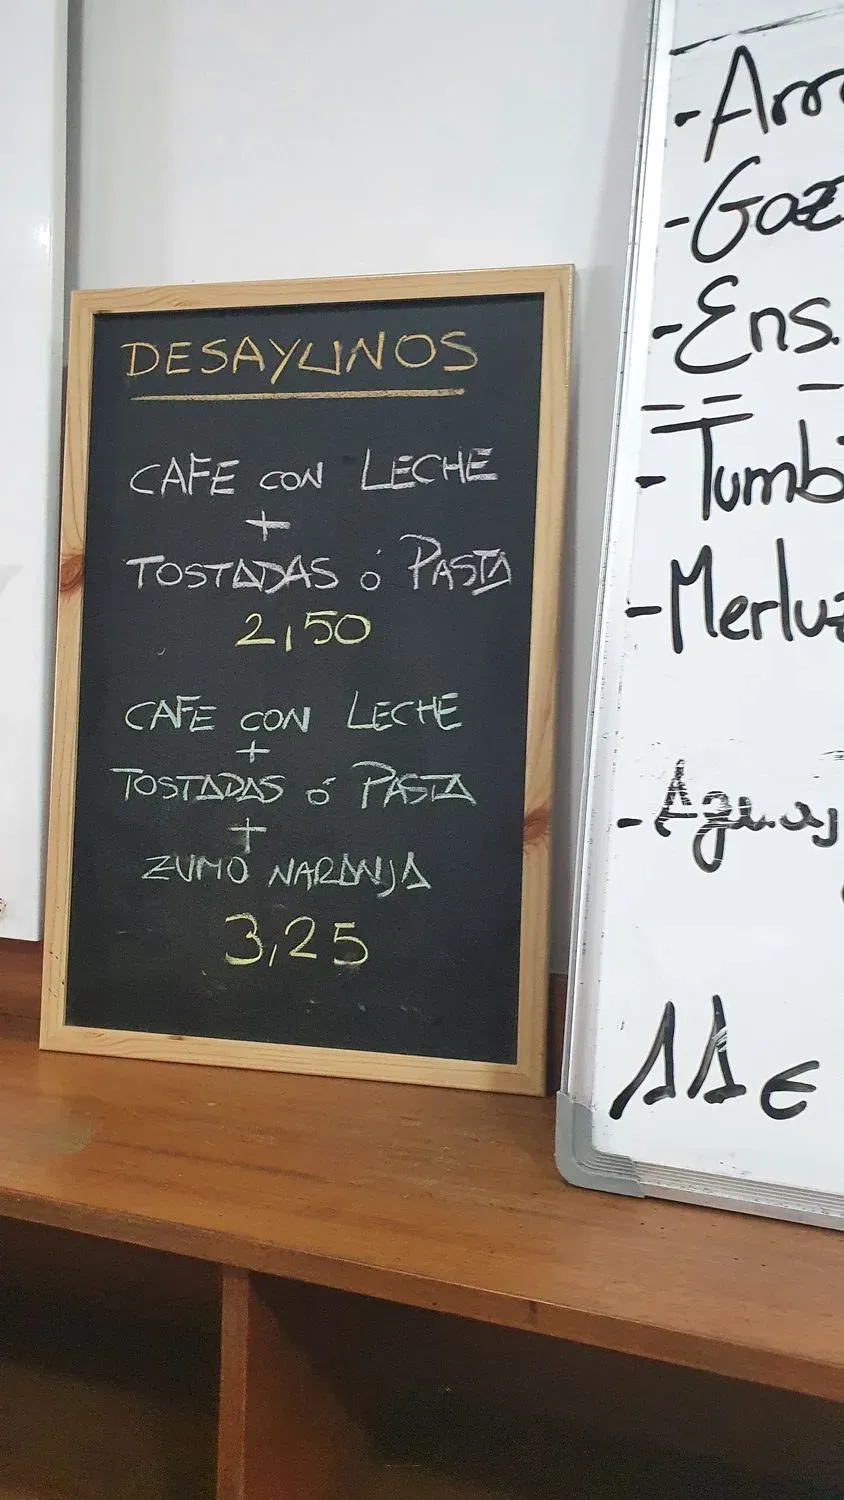 DESAYUNOS
CAFE CON LECHE
+
TOSTADAS ó PASTA
2,50
CAFE CON LECHE
+
TOSTADAS ó PASTA
+
ZUMO NARANJA
3,25
- Arro
- Gaz
- Ens.
- Tumb
- Merluz
- Aguas
11€